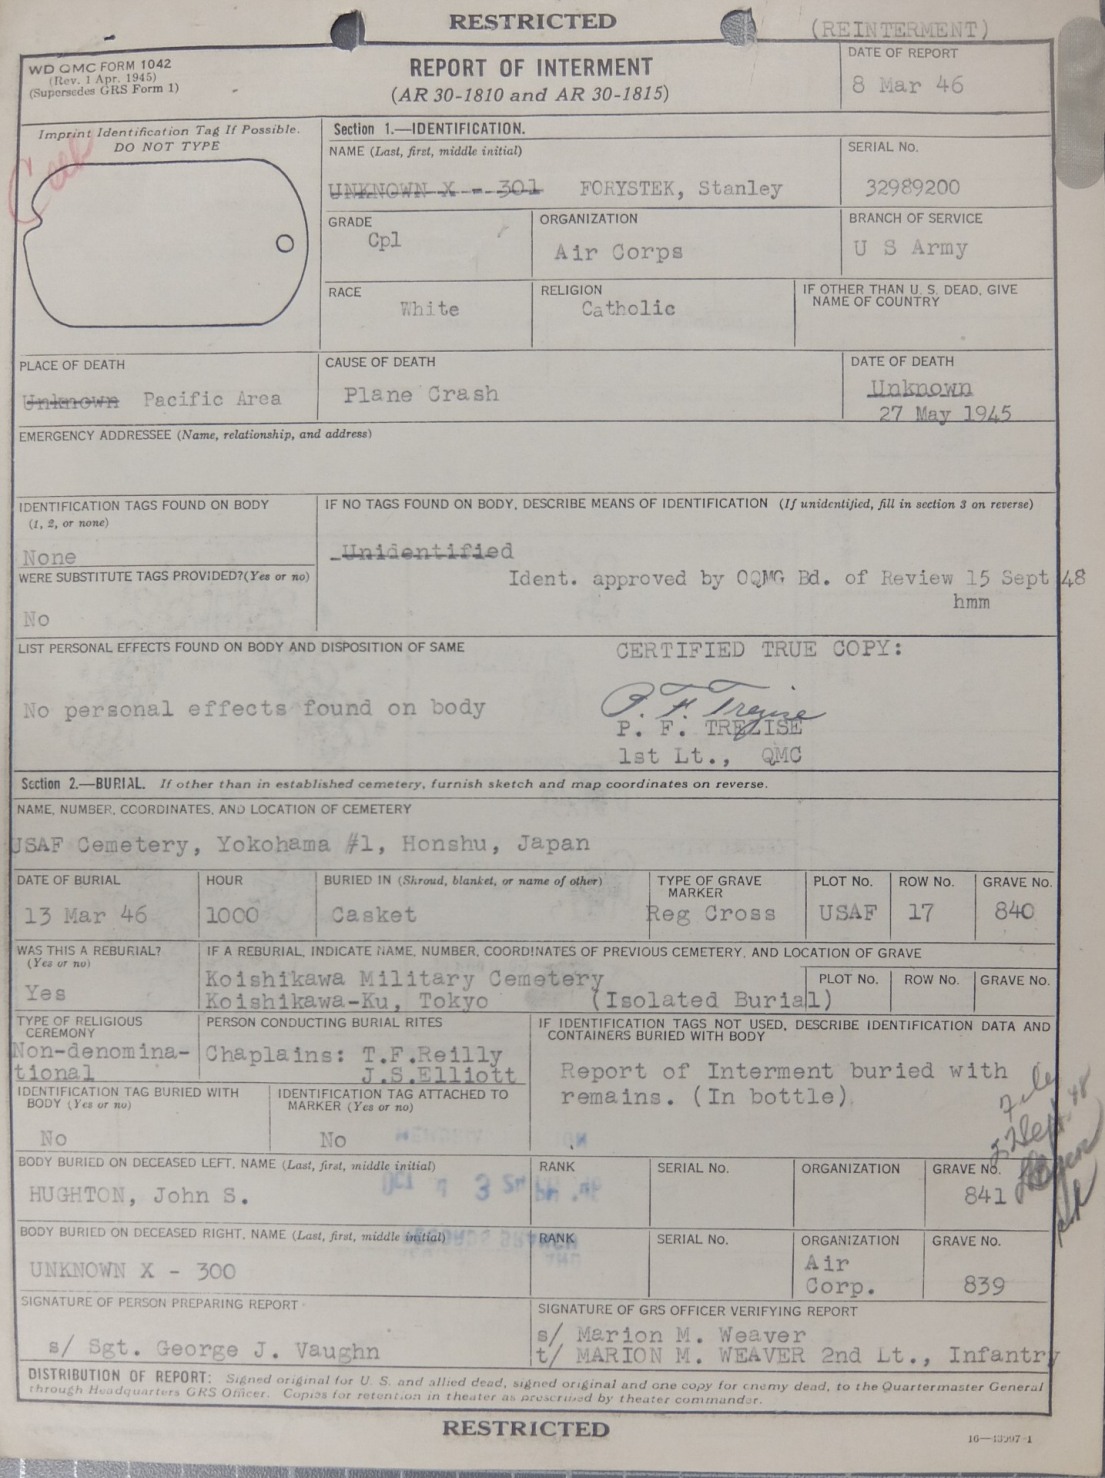 RESTRICTED
(REINTERMENT)
WD QMC FORM 1042
(Rev. 1 Apr. 1945)
(Supersedes GRS Form 1)
REPORT OF INTERMENT
(AR 30-1810 and AR 30-1815)
DATE OF REPORT
8 Mar 46
Imprint Identification Tag If Possible.
DO NOT TYPE
Section 1.—IDENTIFICATION.
NAME (Last, first, middle initial)
UNKNOWN X - 301 FORYSTEK, Stanley
SERIAL No.
32989200
GRADE
Cpl
ORGANIZATION
Air Corps
BRANCH OF SERVICE
U S Army
RACE
White
RELIGION
Catholic
IF OTHER THAN U. S. DEAD, GIVE
NAME OF COUNTRY
PLACE OF DEATH
Unknown Pacific Area
CAUSE OF DEATH
Plane Crash
DATE OF DEATH
Unknown
27 May 1945
EMERGENCY ADDRESSEE (Name, relationship, and address)
IDENTIFICATION TAGS FOUND ON BODY
(1, 2, or none)
None
IF NO TAGS FOUND ON BODY, DESCRIBE MEANS OF IDENTIFICATION (If unidentified, fill in section 3 on reverse)
Unidentified
Ident. approved by OQMG Bd. of Review 15 Sept 48
hmm
WERE SUBSTITUTE TAGS PROVIDED? (Yes or no)
No
LIST PERSONAL EFFECTS FOUND ON BODY AND DISPOSITION OF SAME
No personal effects found on body
CERTIFIED TRUE COPY:
P. F. Trezise
P. F. TREZISE
1st Lt., QMC
Section 2.—BURIAL. If other than in established cemetery, furnish sketch and map coordinates on reverse.
NAME, NUMBER, COORDINATES, AND LOCATION OF CEMETERY
USAF Cemetery, Yokohama #1, Honshu, Japan
DATE OF BURIAL
13 Mar 46
HOUR
1000
BURIED IN (Shroud, blanket, or name of other)
Casket
TYPE OF GRAVE
MARKER
Reg Cross
PLOT No.
USAF
ROW No.
17
GRAVE No.
840
WAS THIS A REBURIAL?
(Yes or no)
Yes
IF A REBURIAL, INDICATE NAME, NUMBER, COORDINATES OF PREVIOUS CEMETERY, AND LOCATION OF GRAVE
Koishikawa Military Cemetery
Koishikawa-Ku, Tokyo (Isolated Burial)
PLOT No.
ROW No.
GRAVE No.
TYPE OF RELIGIOUS
CEREMONY
Non-denomina-
tional
PERSON CONDUCTING BURIAL RITES
Chaplains: T.F.Reilly
J.S.Elliott
IF IDENTIFICATION TAGS NOT USED, DESCRIBE IDENTIFICATION DATA AND
CONTAINERS BURIED WITH BODY
Report of Interment buried with
remains. (In bottle)
IDENTIFICATION TAG BURIED WITH
BODY (Yes or no)
No
IDENTIFICATION TAG ATTACHED TO
MARKER (Yes or no)
No
BODY BURIED ON DECEASED LEFT, NAME (Last, first, middle initial)
HUGHTON, John S.
RANK
SERIAL No.
ORGANIZATION
GRAVE No.
841
BODY BURIED ON DECEASED RIGHT, NAME (Last, first, middle initial)
UNKNOWN X - 300
RANK
SERIAL No.
ORGANIZATION
Air
Corp.
GRAVE No.
839
SIGNATURE OF PERSON PREPARING REPORT
s/ Sgt. George J. Vaughn
SIGNATURE OF GRS OFFICER VERIFYING REPORT
s/ Marion M. Weaver
t/ MARION M. WEAVER 2nd Lt., Infantry
DISTRIBUTION OF REPORT: Signed original for U. S. and allied dead, signed original and one copy for enemy dead, to the Quartermaster General
through Headquarters GRS Officer. Copies for retention in theater as prescribed by theater commander.
RESTRICTED